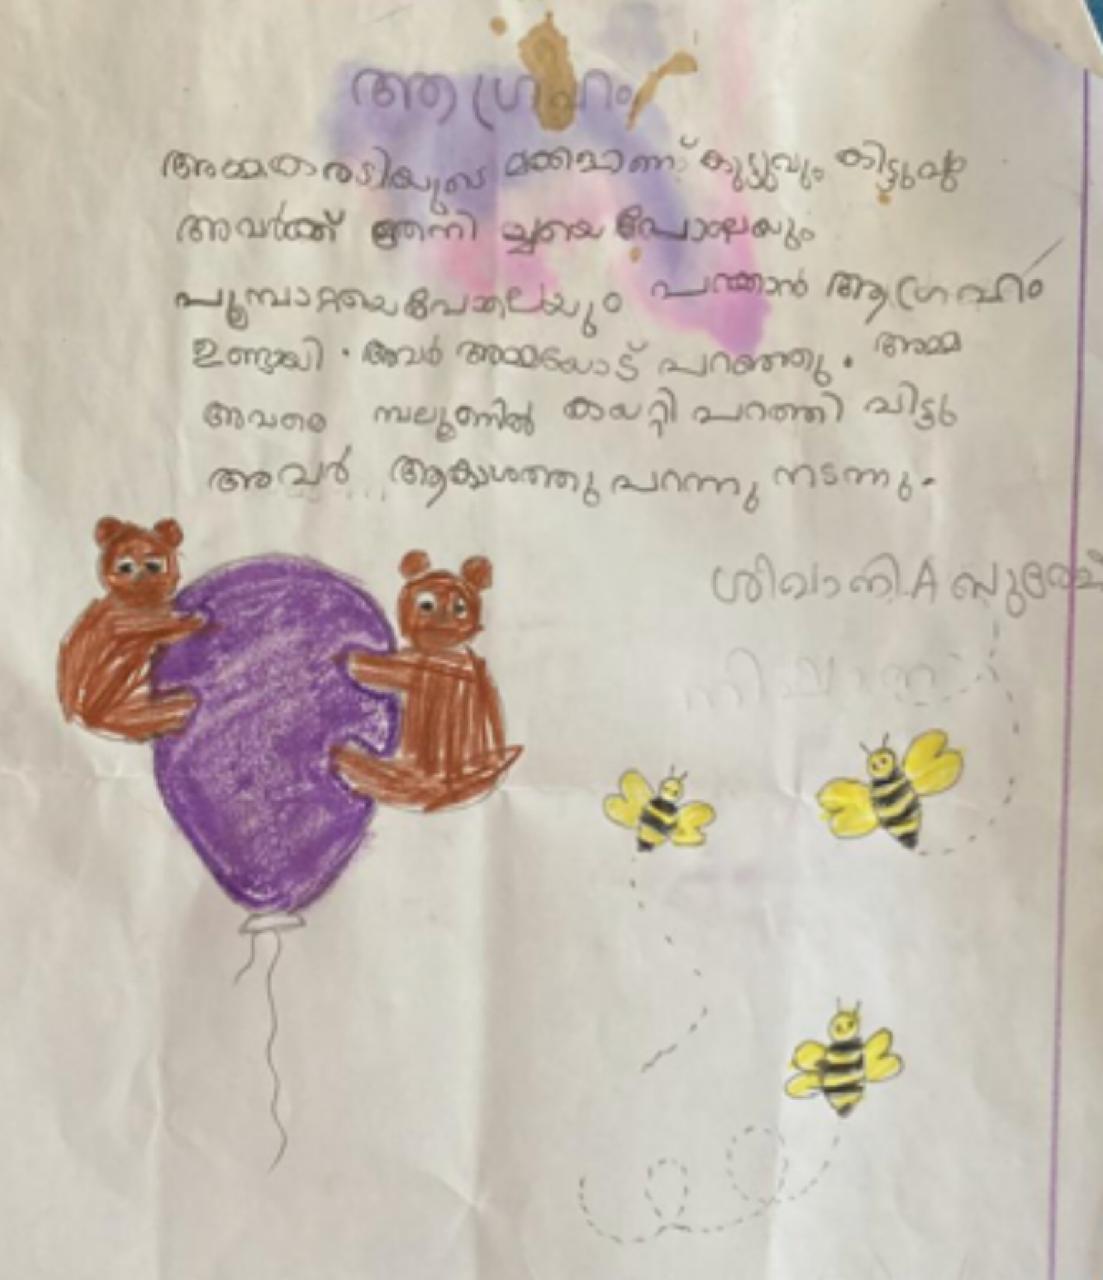 ആഗ്രഹം
അമ്മകരടിയുടെ മക്കളാണ് കുട്ടുവും കിട്ടുവും
അവർക്ക് തേനീച്ചയെ പോലെയും
പൂമ്പാറ്റയെപോലെയും പറക്കാൻ ആഗ്രഹം
ഉണ്ടായി. അവർ അമ്മയോട് പറഞ്ഞു. അമ്മ
അവരെ ബലൂണിൽ കയറ്റി പറത്തി വിട്ടു
അവർ ആകാശത്തു പറന്നു നടന്നു.
ശിവാനി.A